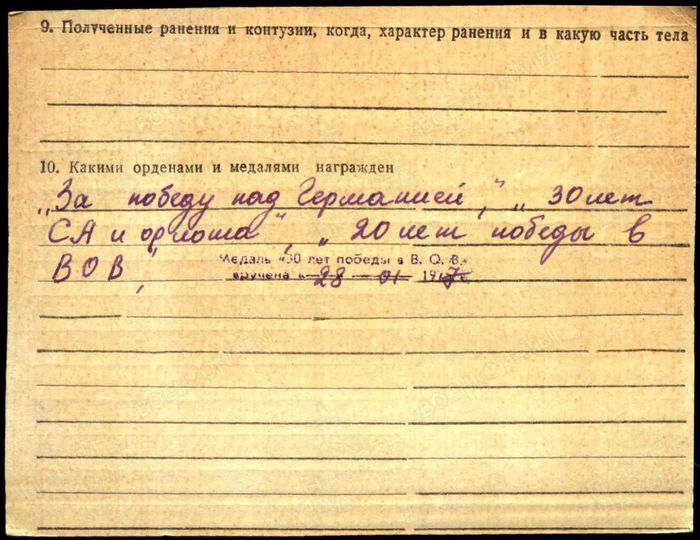 9. Полученные ранения и контузии, когда, характер ранения и в какую часть тела
10. Какими орденами и медалями награжден
„За победу над Германией", „30 лет
СА и флота", „20 лет победы в
ВОВ"
Медаль «30 лет победы в В. О. В»
вручена « 28 — 01 197